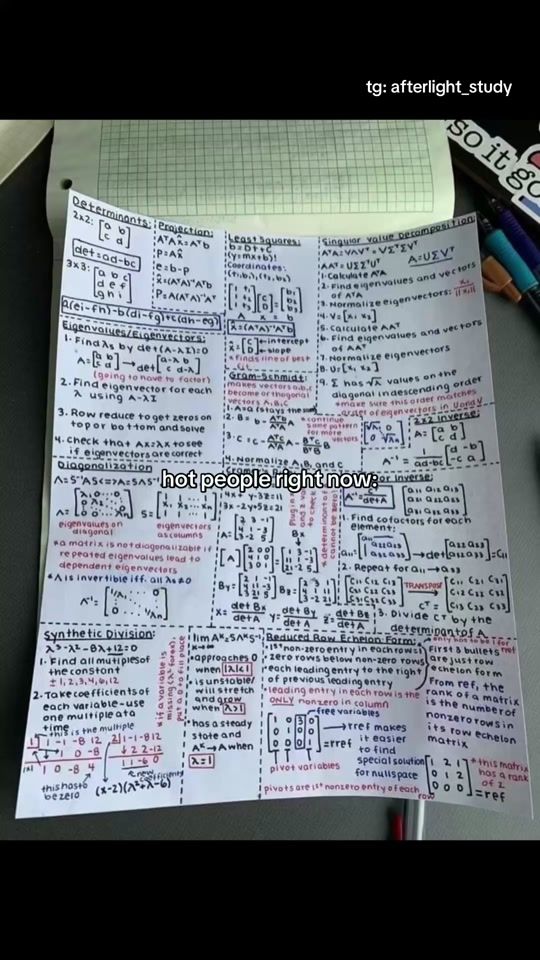 tg: afterlight_study
so it go
Determinants:
2x2: [a b
c d]
det=ad-bc
3x3: [a b c
d e f
g h i]
a(ei-fh)-b(di-fg)+c(dh-eg)
Projection:
AᵀAx̂=Aᵀb
p=Ax̂
e=b-p
x̂=(AᵀA)⁻¹Aᵀb
P=A(AᵀA)⁻¹Aᵀ
Least Squares:
b=Dt+C
(y=mx+b)!
Coordinates:
(t₁,b₁),(t₂,b₂)
A x = b
x̂=(AᵀA)⁻¹Aᵀb
x̂=[C
D] intercept
slope
*finds line of best
fit
Singular Value Decomposition
A=UΣVᵀ
1. Calculate AᵀA
2. Find eigenvalues and vectors
of AᵀA
3. Normalize eigenvectors:
4. V=[x₁ x₂]
5. Calculate AAᵀ
6. Find eigenvalues and vectors
of AAᵀ
7. Normalize eigenvectors
8. U=[x₁ x₂]
9. Σ has √λ values on the
diagonal in descending order
*make sure this order matches
order of eigenvectors in U and V
Eigenvalues/Eigenvectors:
1. Find λs by det(A-λI)=0
A=[a b
c d]→det[a-λ b
c d-λ]
(going to have to factor)
2. Find eigenvector for each
λ using A-λI
3. Row reduce to get zeros on
top or bottom and solve
4. Check that Ax=λx to see
if eigenvectors are correct
Gram-Schmidt:
makes vectors a,b,c
become orthogonal
vectors A,B,C
1. A=a (stays the same)
*continue
same pattern
for more
vectors
4. Normalize A, B, and C
2x2 Inverse:
A=[a b
c d]
A⁻¹= 1/ad-bc [d -b
-c a]
hot people right now:
Diagonalization
eigenvalues on
diagonal
eigenvectors
as columns
*a matrix is not diagonalizable if
repeated eigenvalues lead to
dependent eigenvectors
*A is invertible iff. all λs≠0
4x+y-3z=11
3x-2y+5z=21
X= det Bx/det A Y= det By/det A Z= det Bz/det A
*determinant of A
cannot be zero!
1. Find cofactors for each
element:
2. Repeat for a₁₁ → a₃₃
TRANSPOSE
3. Divide Cᵀ by the
determinant of A
Synthetic Division:
λ³-λ²-8λ+12=0
1. Find all multiples of
the constant
± 1,2,3,4,6,12
2. Take coefficients of
each variable-use
one multiple at a
time
this is the multiple
1| 1 -1 -8 12
1 0 -8
1 0 -8 4
this has to
be zero
2| 1 -1 -8 12
2 2 -12
1 1 -6 0
new
coefficients
(x-2)(λ²+λ-6)
*if a variable is
missing (λ² for ex),
put a 0 to fill place
lim Aᵏ=SΛᵏS⁻¹
k→∞
*approaches 0
when |λ|<1
*is unstable/
will stretch
and grow
when λ>1
*has a steady
state and
Aᵏ→A when
λ=1
Reduced Row Echelon Form:
*1ˢᵗ non-zero entry in each row is 1
*zero rows below non-zero rows
*each leading entry to the right
of previous leading entry
*leading entry in each row is the
ONLY nonzero in column
free variables
=rref
pivot variables
→rref makes
it easier
to find
special solution
for nullspace
pivots are 1ˢᵗ nonzero entry of each
row
First 3 bullets
are just row
echelon form
From ref, the
rank of a matrix
is the number of
nonzero rows in
its row echelon
matrix
[1 2 1
0 1 2
0 0 0]=ref
*this matrix
has a rank
of 2